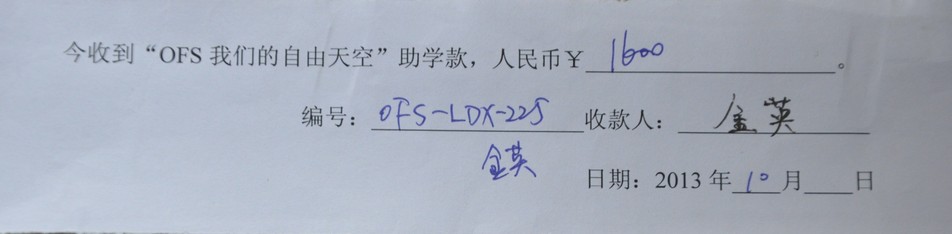 今收到“OFS 我们的自由天空”助学款，人民币￥1600。
编号：OFS-LDX-225 收款人：金英
金英
日期：2013 年 10 月 日